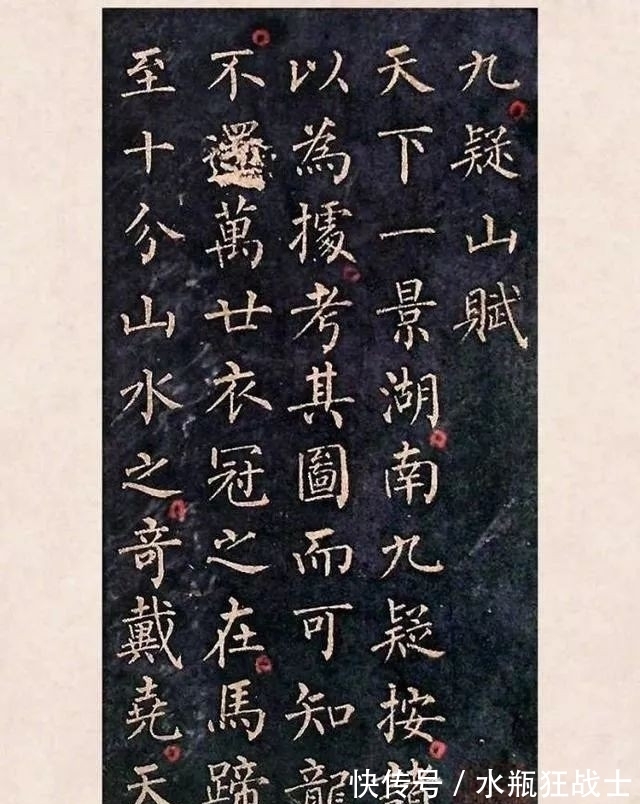 九疑山賦
天下一景湖南九疑按
以為據考其圖而可知龍
不還萬世衣冠之在馬蹄
至十分山水之奇戴堯天
快传号 / 水瓶狂战士